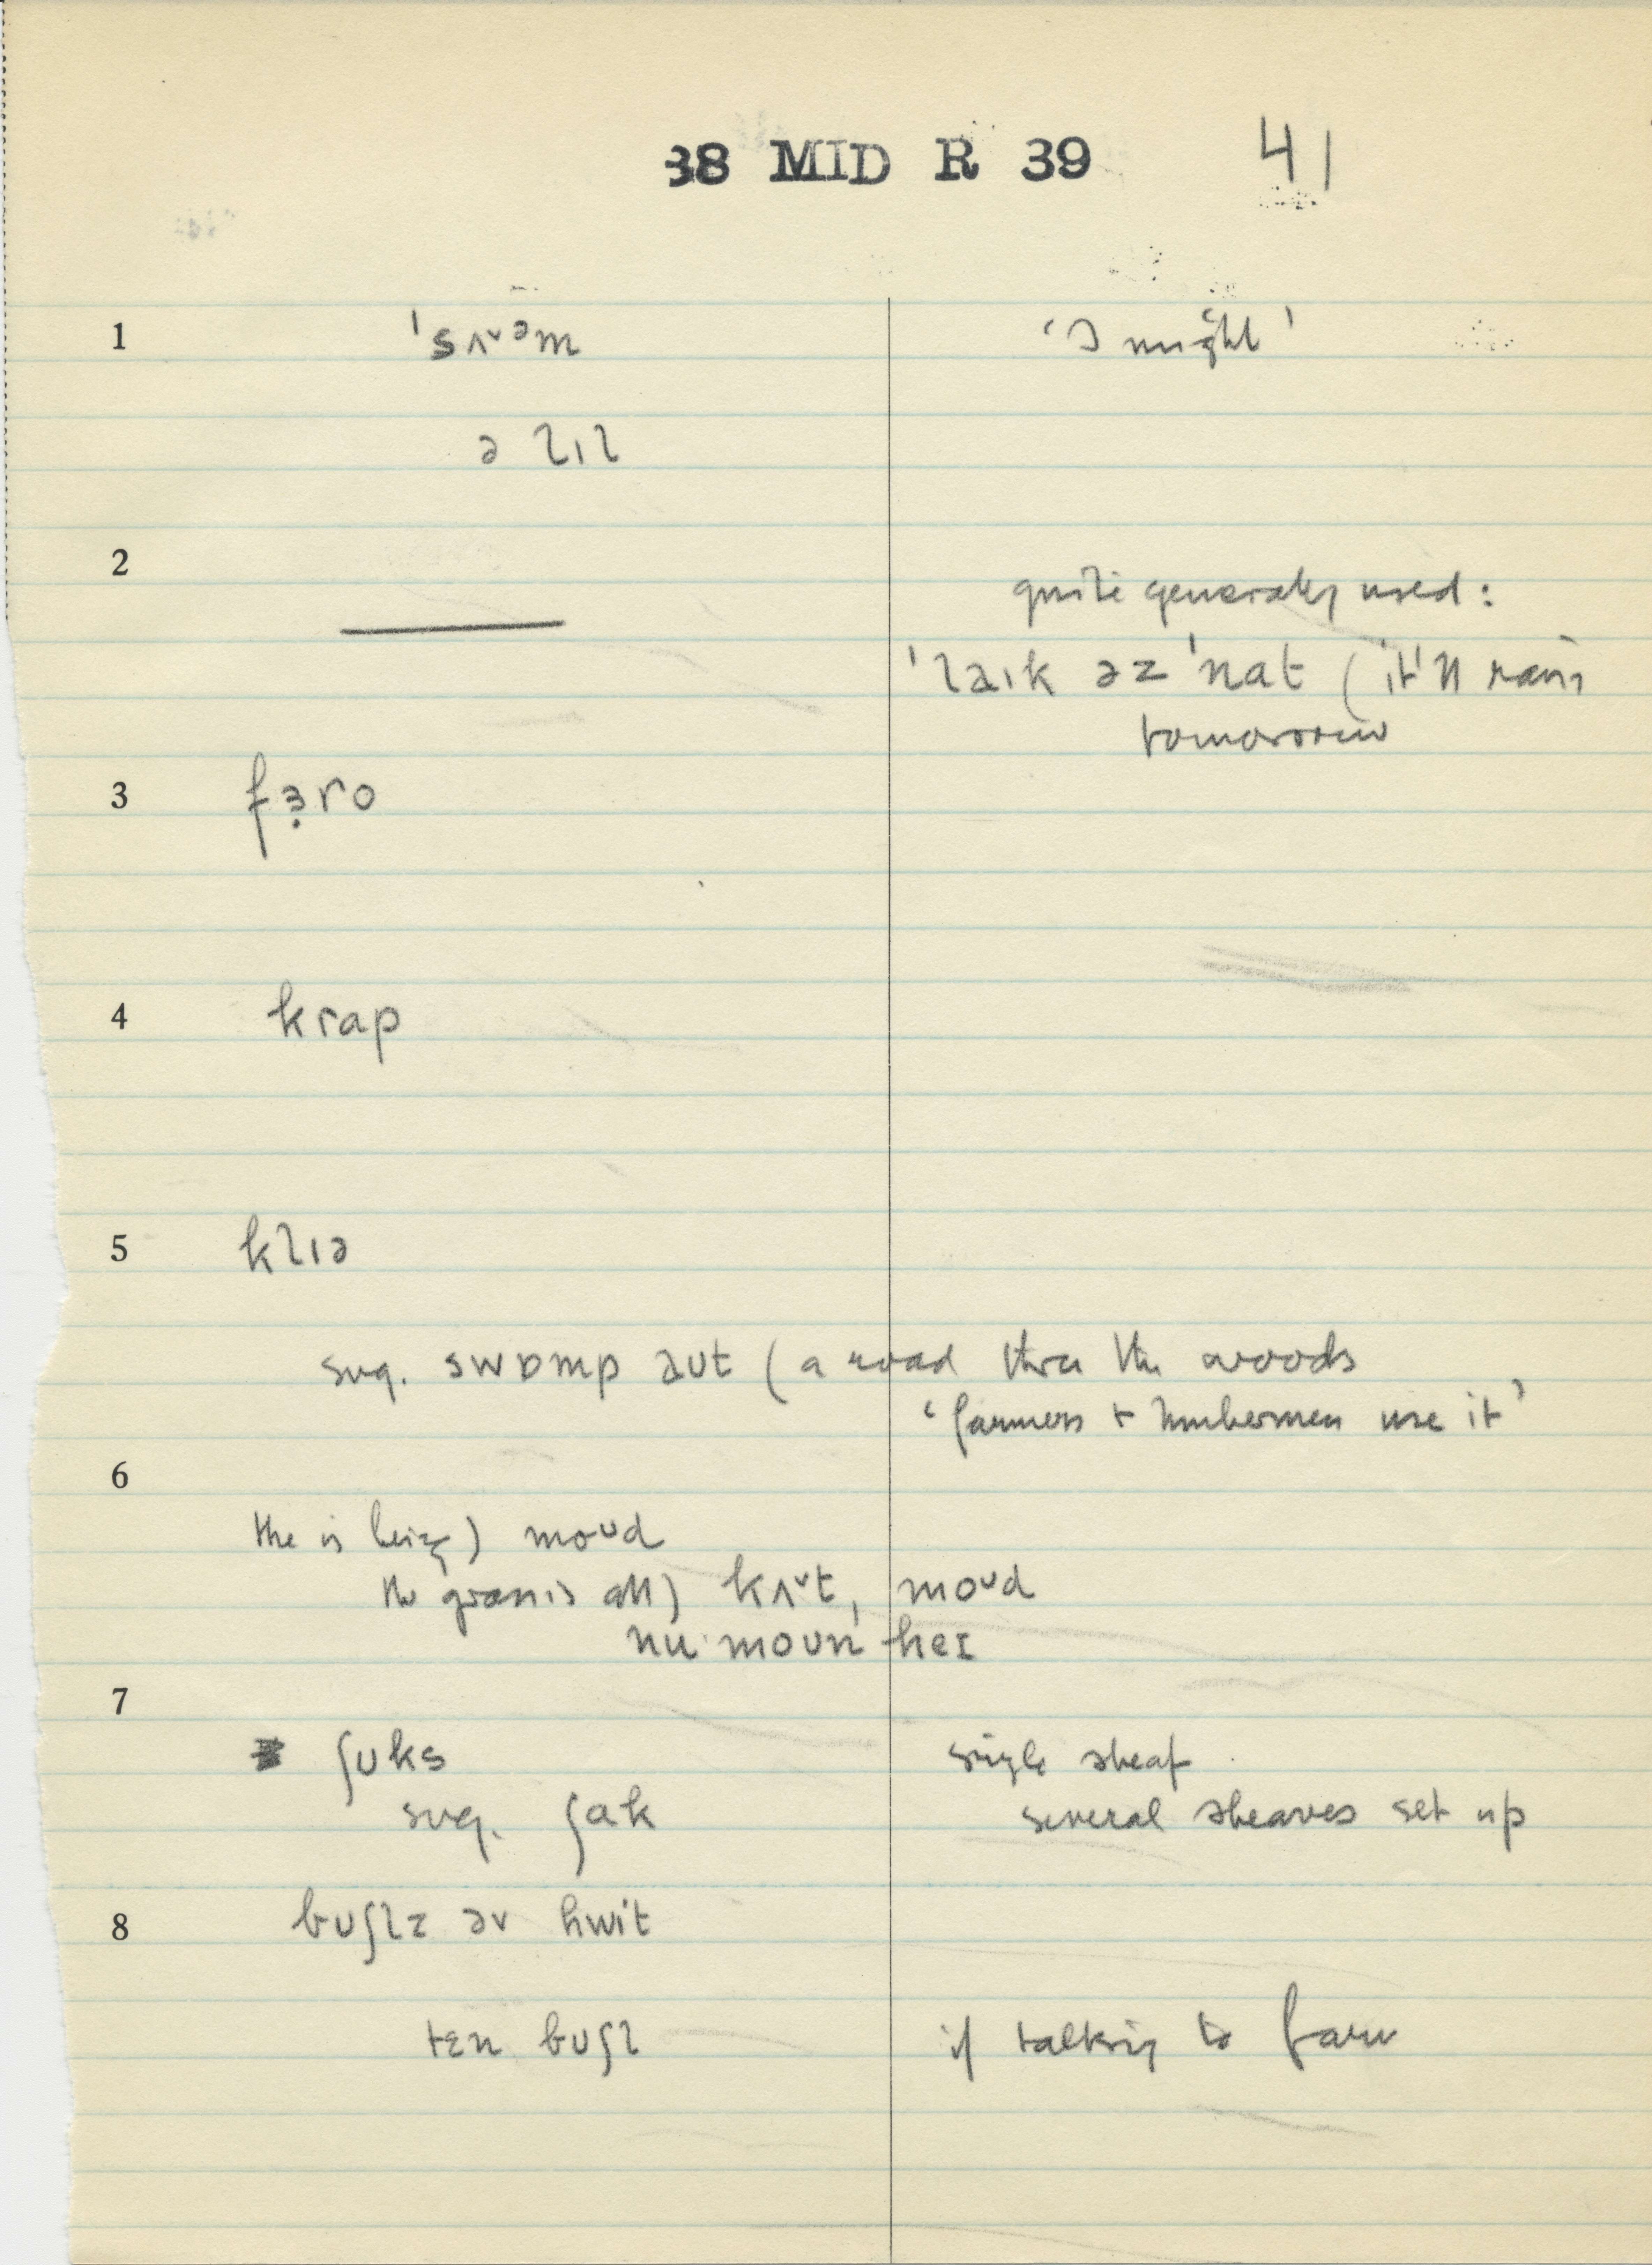 38 MID R 39 41
1 ˈsʌᵛᵊm ‘I might’
ə lɪl
2
quite generally used:
ˈlaɪk əz ˈnat (it'll rain
tomorrow
3 fɜ̣ro
4 krap
5 klɪə
sug. swɒmp aʊt (a road thru the woods
‘farmers + lumbermen use it’
6
the is being) moᴜd
the grass is all) kʌᵛt, moᴜd
nu moʊn heɪ
7
ʃʊks single sheaf
sug. ʃak several sheaves set up
8 bʊʃlz əv hwit
tɛn bʊʃl if talking to farm